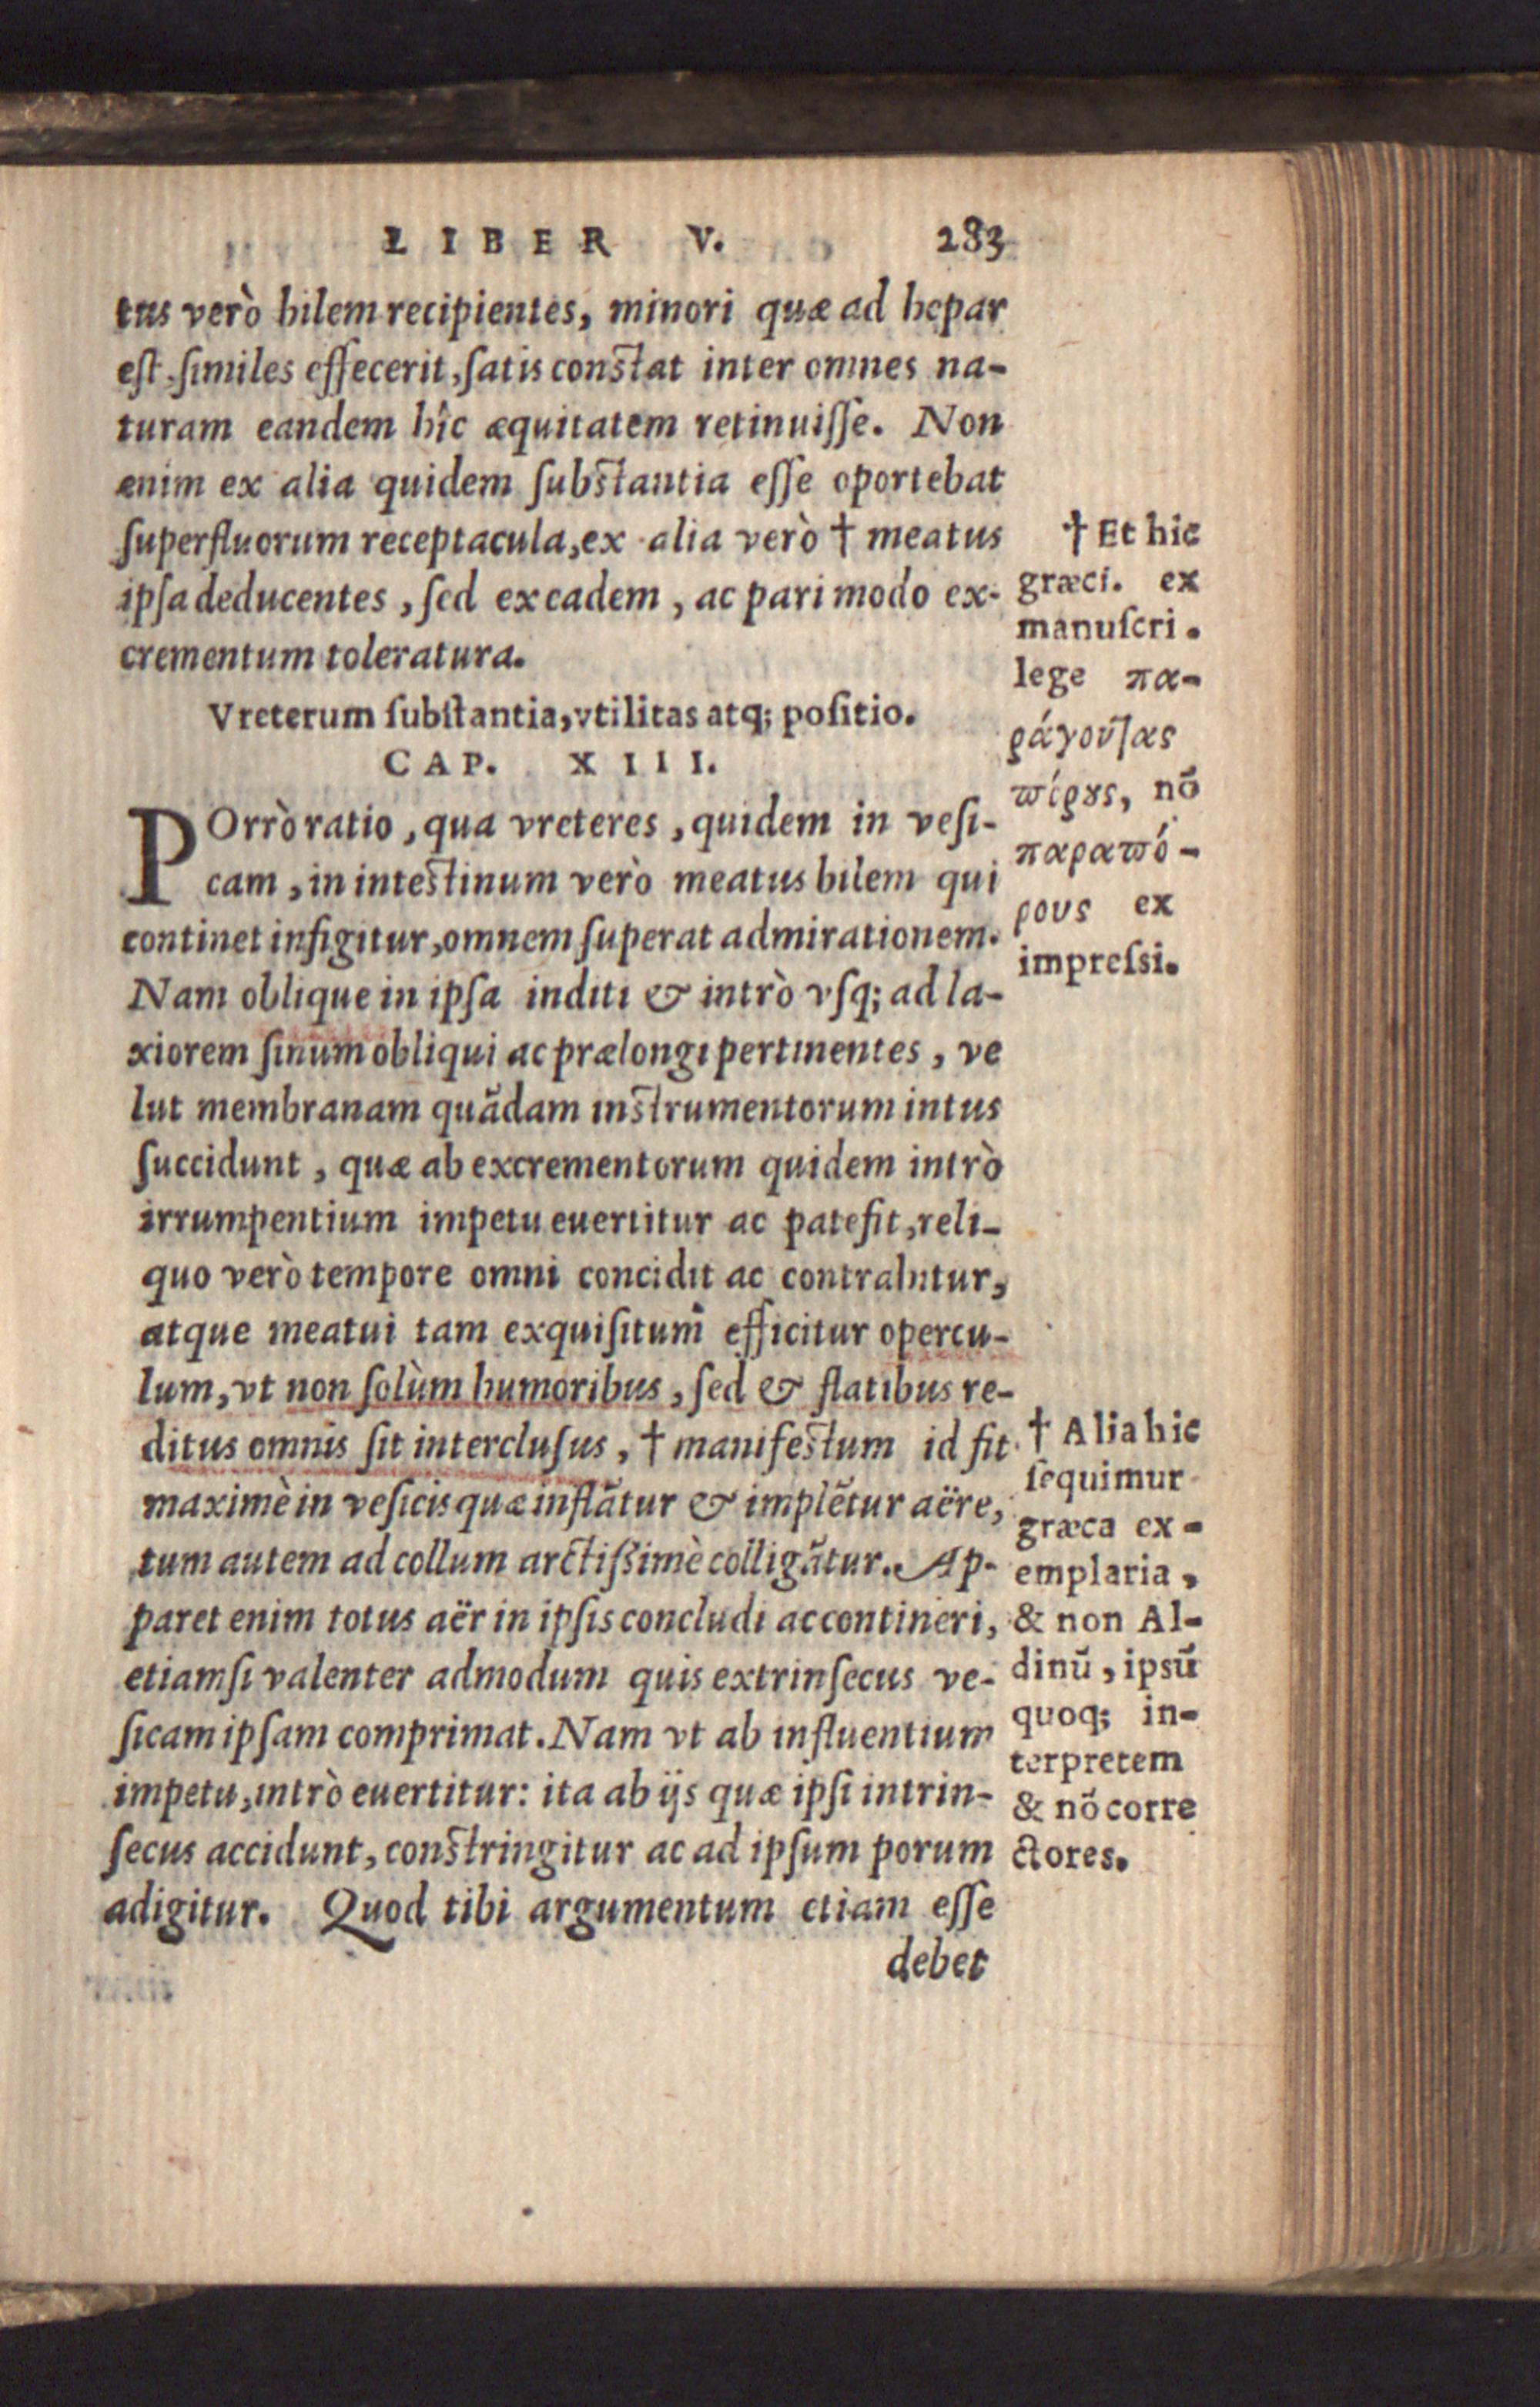 LIBER V. 283
tus verò bilem recipientes, minori quæ ad hepar
eſt, ſimiles effecerit, ſatis conſtat inter omnes na-
turam eandem hîc æquitatem retinuiſſe. Non
enim ex alia quidem ſubſtantia eſſe oportebat
ſuperfluorum receptacula, ex alia verò † meatus
ipſa deducentes, ſed ex eadem, ac pari modo ex-
crementum toleratura.
Vreterum ſubſtantia, vtilitas atq; poſitio.
CAP. XIII.
POrrò ratio, qua vreteres, quidem in veſi-
cam, in inteſtinum verò meatus bilem qui
continet infigitur, omnem ſuperat admirationem.
Nam oblique in ipſa inditi & intrò vſq; ad la-
xiorem ſinum obliqui ac prælongi pertinentes, ve
lut membranam quãdam inſtrumentorum intus
ſuccidunt, quæ ab excrementorum quidem intrò
irrumpentium impetu euertitur ac patefit, reli-
quo verò tempore omni concidit ac contrahitur,
atque meatui tam exquiſitum efficitur opercu-
lum, vt non ſolùm humoribus, ſed & flatibus re-
ditus omnis ſit intercluſus, † manifeſtum id fit
maximè in veſicis quæ inflãtur & implẽtur aëre,
tum autem ad collum arctiſsimè colligãtur. Ap-
paret enim totus aër in ipſis concludi ac contineri,
etiamſi valenter admodum quis extrinſecus ve-
ſicam ipſam comprimat. Nam vt ab influentium
impetu, intrò euertitur: ita ab ijs quæ ipſi intrin-
ſecus accidunt, conſtringitur ac ad ipſum porum
adigitur. Quod tibi argumentum etiam eſſe
debet
† Et hic
græci. ex
manuſcri.
lege πα-
ϱάγουτας
ϖόϱȣς, nõ
παραϖό-
ρους ex
impreſsi.
† Alia hic
ſequimur
græca ex-
emplaria,
& non Al-
dinũ, ipsũ
quoq; in-
terpretem
& nõ corre
ctores.